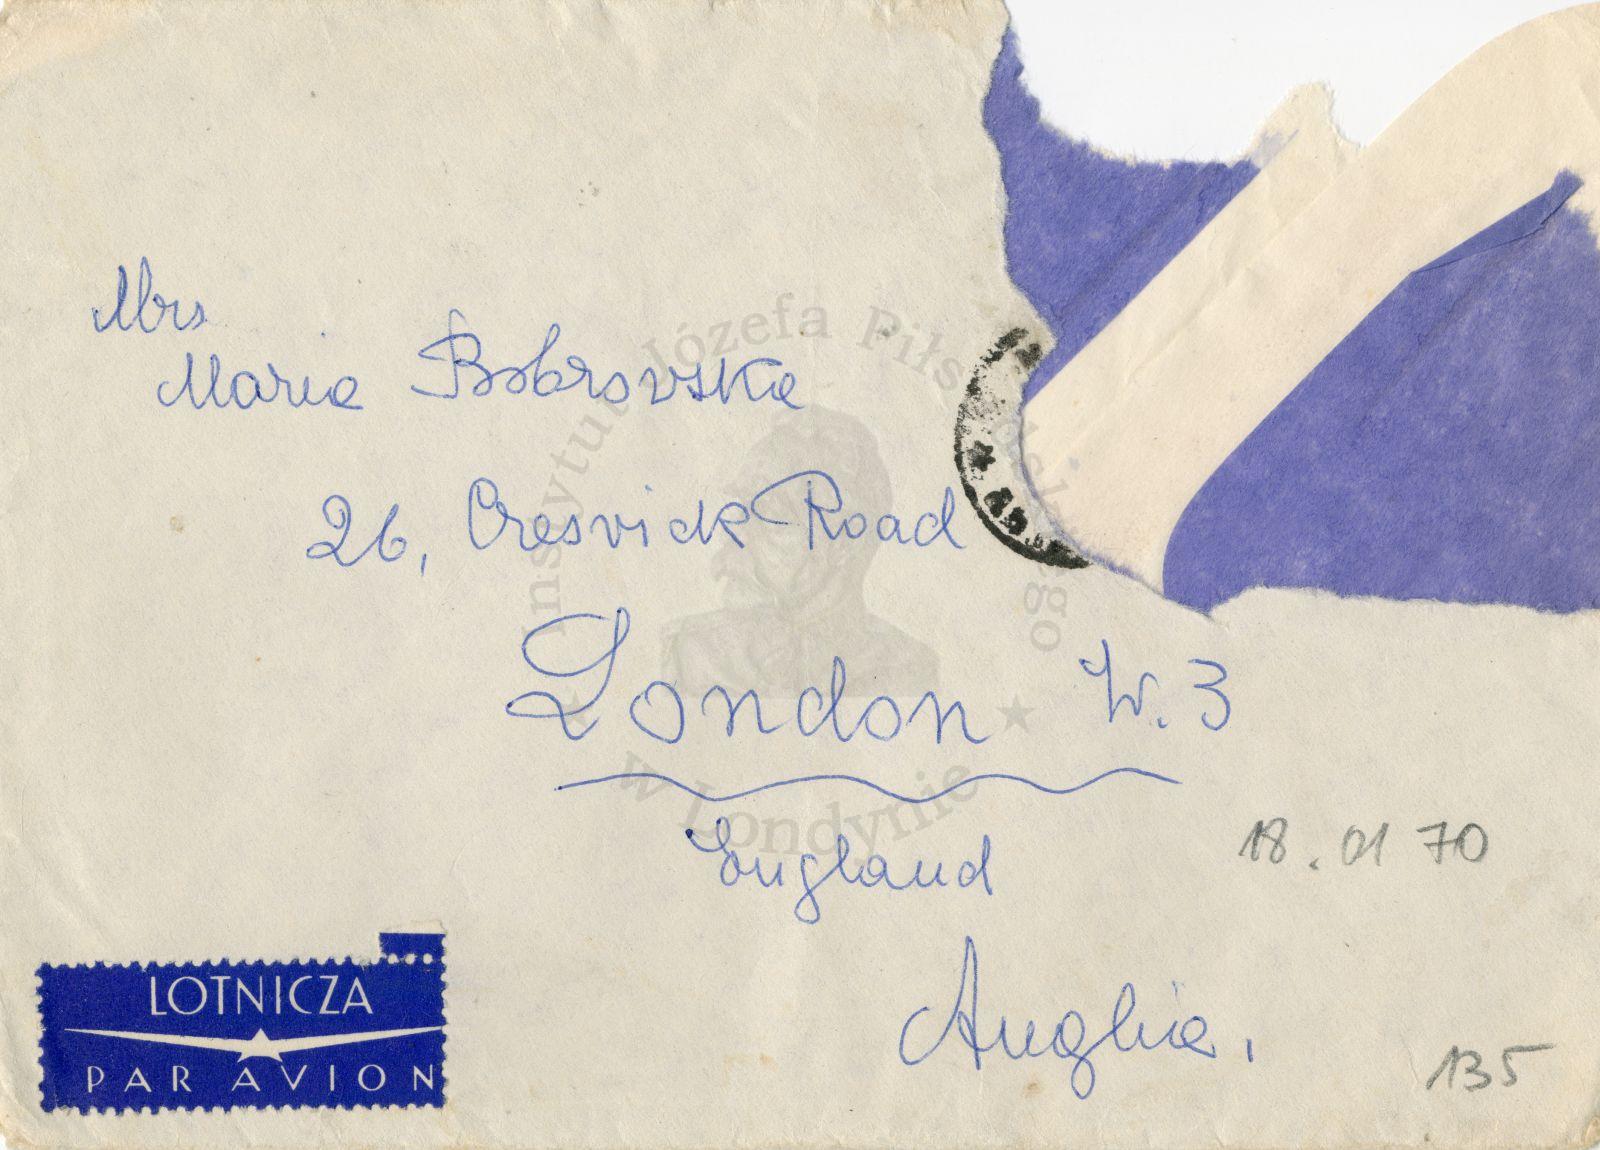 Mrs
Maria Bobrovska
26, Cresvick Road
London W. 3
England
Anglia.
18.01 70
135
LOTNICZA
PAR AVION
Instytut Józefa Piłsudskiego
w Londynie